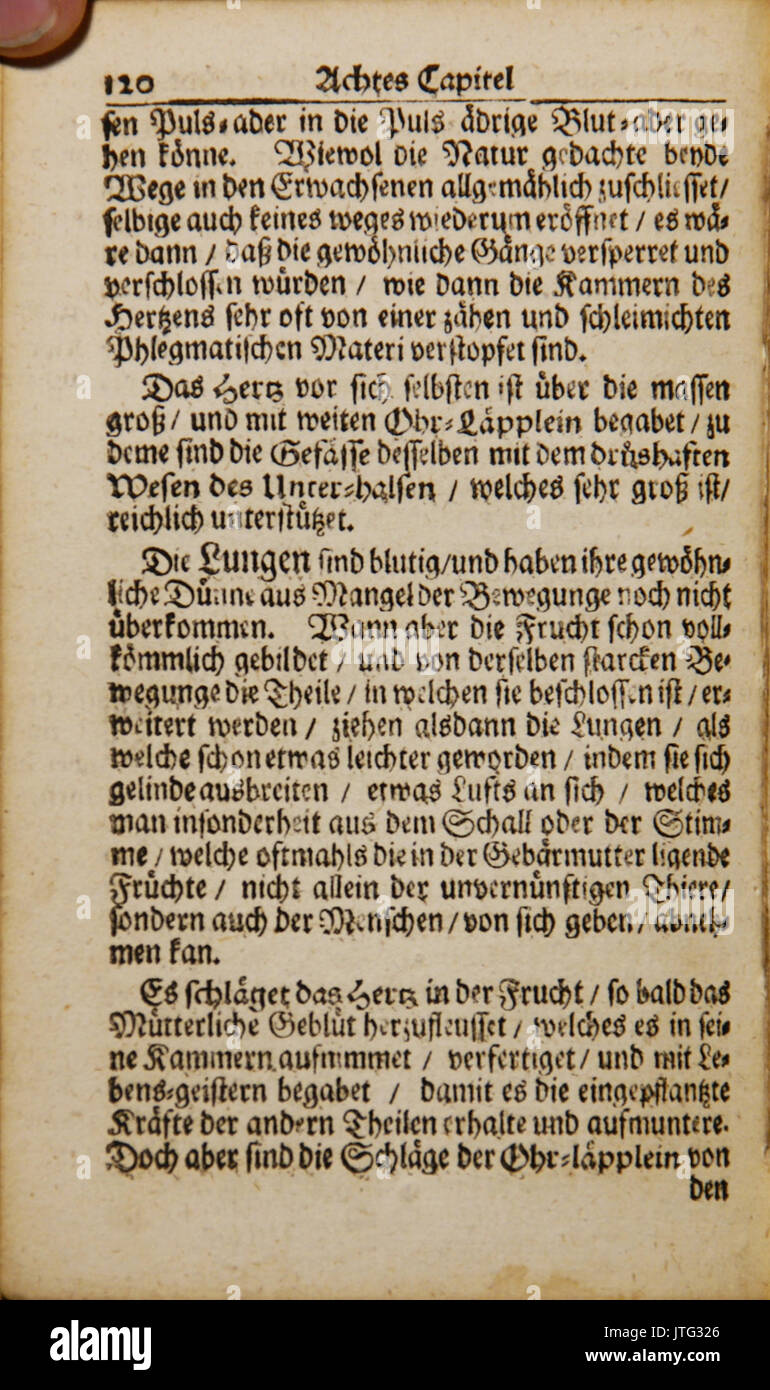 120 Achtes Capitel
sen Puls⸗ader in die Puls ädrige Blut⸗ader ge⸗
hen könne. Wiewol die Natur gedachte beyde
Wege in den Erwachsenen allgemählich zuschliesset/
selbige auch keines weges wiederum eröffnet / es wä⸗
re dann / daß die gewöhnliche Gänge versperret und
verschlossen würden / wie dann die Kammern des
Hertzens sehr oft von einer zähen und schleimichten
Phlegmatischen Materi verstopfet sind.
Das Hertz vor sich selbsten ist über die massen
groß / und mit weiten Ohr⸗Läpplein begabet / zu
deme sind die Gefässe desselben mit dem drüshaften
Wesen des Unter⸗halsen / welches sehr groß ist/
reichlich unterstützet.
Die Lungen sind blutig/und haben ihre gewöhn⸗
liche Dünne aus Mangel der Bewegunge noch nicht
überkommen. Wann aber die Frucht schon voll⸗
kömmlich gebildet / und von derselben starcken Be⸗
wegunge die Theile / in welchen sie beschlossen ist / er⸗
weitert werden / ziehen alsdann die Lungen / als
welche schon etwas leichter geworden / indem sie sich
gelinde ausbreiten / etwas Lufts an sich / welches
man insonderheit aus dem Schall oder der Stim⸗
me / welche oftmahls die in der Gebärmutter ligende
Früchte / nicht allein der unvernünftigen Thiere/
sondern auch der Menschen / von sich geben / abneh⸗
men kan.
Es schläget das Hertz in der Frucht / so bald das
Mütterliche Geblüt herzufleusset / welches es in sei⸗
ne Kammern aufnimmet / verfertiget / und mit Le⸗
bens⸗geistern begabet / damit es die eingepflantzte
Kräfte der andern Theilen erhalte und aufmuntere.
Doch aber sind die Schläge der Ohr⸗läpplein von
den
alamy
Image ID: JTG326
www.alamy.com